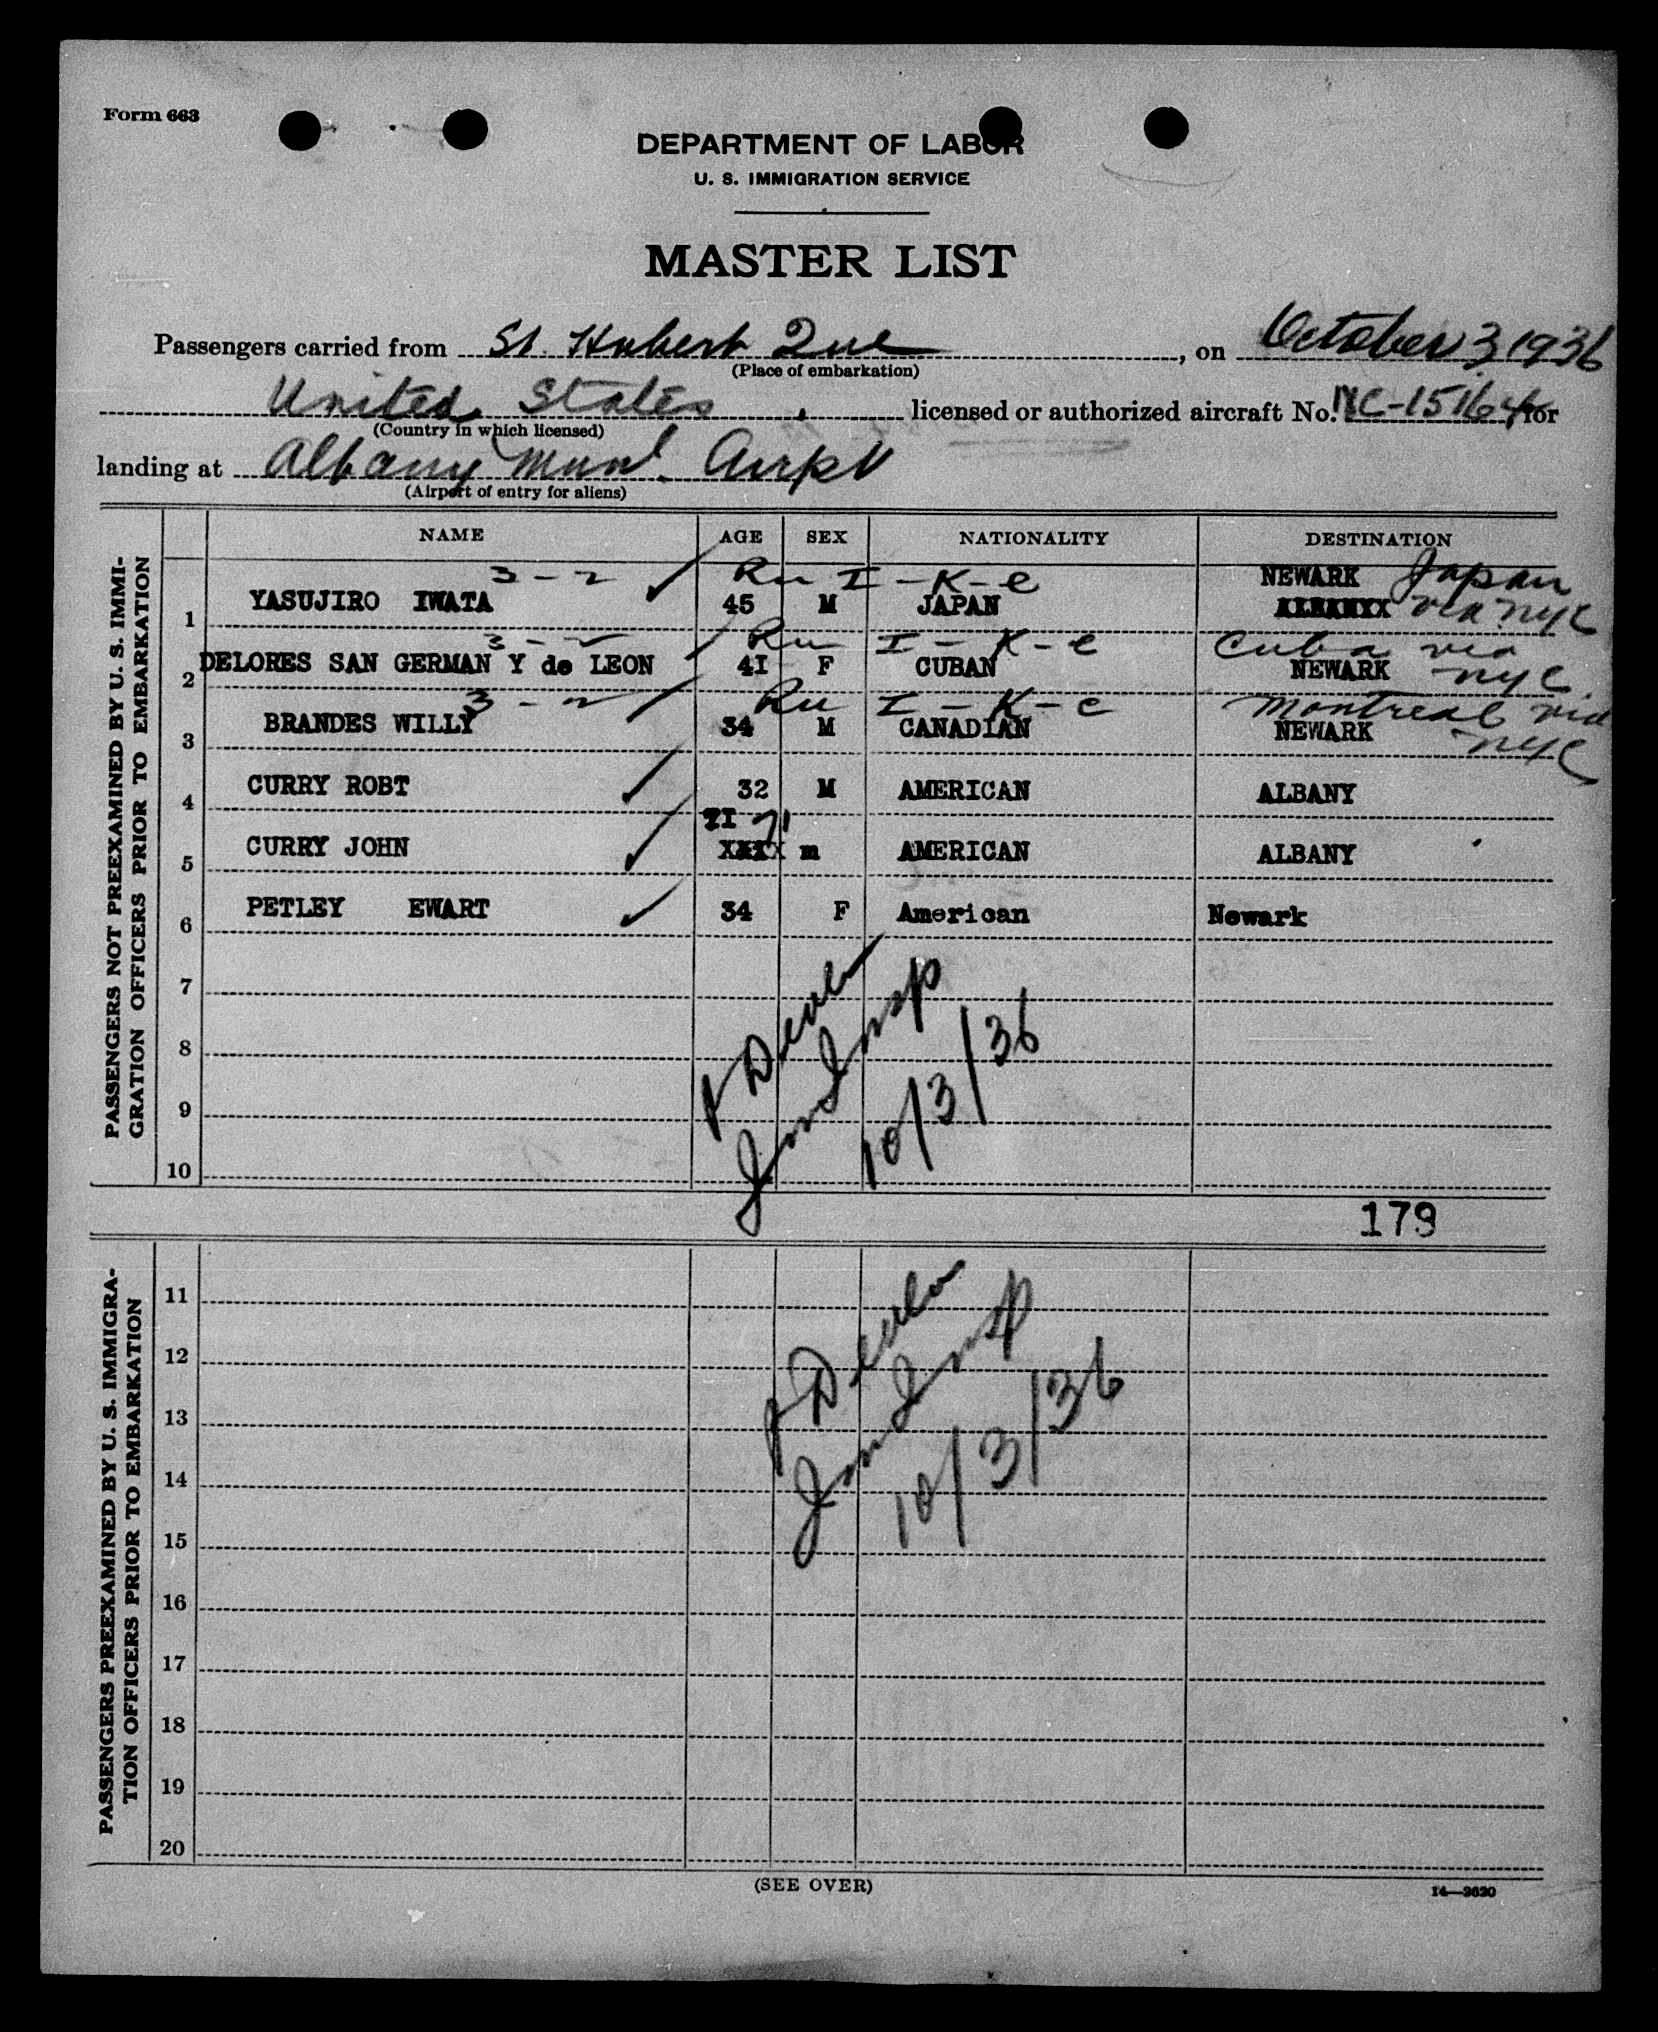 Form 663
DEPARTMENT OF LABOR
U. S. IMMIGRATION SERVICE
MASTER LIST
Passengers carried from St. Hubert Que, on October 3 1936
(Place of embarkation)
United States, licensed or authorized aircraft No. NC-15164, for
(Country in which licensed)
landing at Albany Munl. Airpt
(Airport of entry for aliens)
NAME AGE SEX NATIONALITY DESTINATION
PASSENGERS NOT PREEXAMINED BY U. S. IMMI-
GRATION OFFICERS PRIOR TO EMBARKATION
3-2 I-K-e NEWARK Japan
1 YASUJIRO IWATA 45 M JAPAN via NYC
3-2 I-K-e Cuba via
2 DELORES SAN GERMAN Y de LEON 4I F CUBAN NEWARK NYC.
3-2 I-K-e Montreal via
3 BRANDES WILLY 34 M CANADIAN NEWARK NYC
4 CURRY ROBT 32 M AMERICAN ALBANY
7I 71
5 CURRY JOHN m AMERICAN ALBANY
6 PETLEY EWART 34 F American Newark
7
8
9
10
Imm Insp
10/3/36
179
PASSENGERS PREEXAMINED BY U. S. IMMIGRA-
TION OFFICERS PRIOR TO EMBARKATION
11
12
13
14
15
16
17
18
19
20
Imm Insp
10/3/36
(SEE OVER)
14—2620